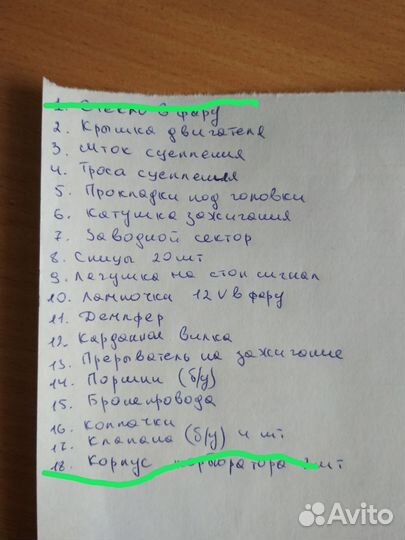 1. Стекло в фару
2. Крышка двигателя
3. Шток сцепления
4. Троса сцепления
5. Прокладки под головки
6. Катушка зажигания
7. Заводной сектор
8. Спицы 20 шт
9. Лягушка на стоп сигнал
10. Лампочки 12 V в фару
11. Демпфер
12. Карданная вилка
13. Прерыватель на зажигание
14. Поршни (б/у)
15. Бронепровода
16. Колпачки
17. Клапана (б/у) 4 шт
18. Корпус карбюратора шт
Avito